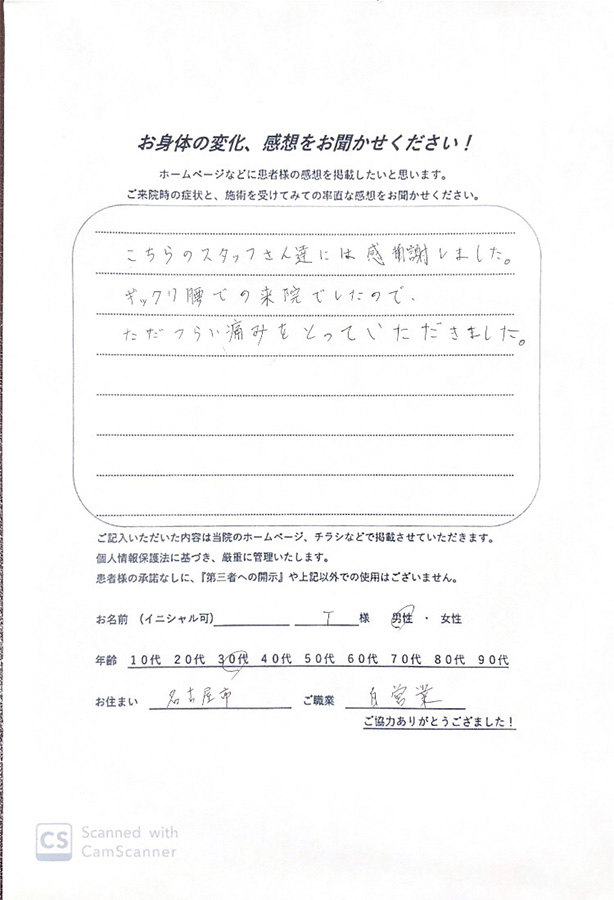 お身体の変化、感想をお聞かせください！
ホームページなどに患者様の感想を掲載したいと思います。
ご来院時の症状と、施術を受けてみての率直な感想をお聞かせください。
こちらのスタッフさん達には感謝しました。
ギックリ腰での来院でしたので、
ただつらい痛みをとっていただきました。
ご記入いただいた内容は当院のホームページ、チラシなどで掲載させていただきます。
個人情報保護法に基づき、厳重に管理いたします。
患者様の承諾なしに、『第三者への開示』や上記以外での使用はございません。
お名前 （イニシャル可） T 様 男性 ・ 女性
年齢 10代 20代 30代 40代 50代 60代 70代 80代 90代
お住まい 名古屋市 ご職業 自営業
ご協力ありがとうござました！
CS Scanned with
CamScanner